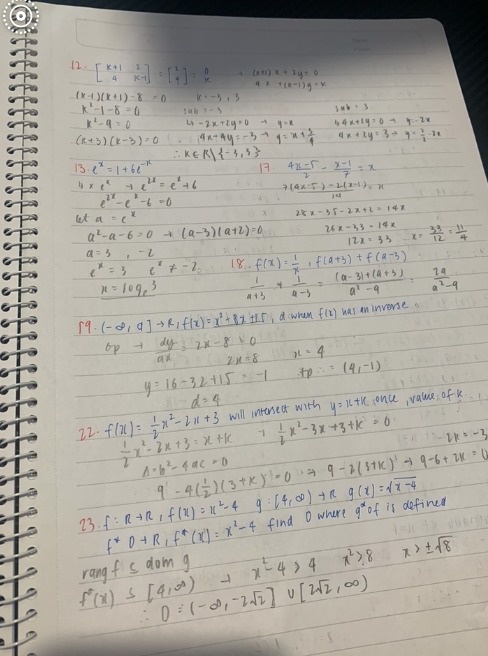 12. [k+1 2 / 4 k-1] = [x / y] = 0 / k → (k+1)x + 2y = 0
4x + (k-1)y = k
(k-1)(k+1) - 8 = 0 k = -3, 3
k² - 1 - 8 = 0 sub = -3 sub = 3
k² - 9 = 0 -2x + 2y = 0 → y = x 4x + 2y = 0 → y = -2x
(k+3)(k-3) = 0 4x + 2y = 3 →
∴ k ∈ R \ {-3, 3}
13. eˣ = 1 + 6e⁻ˣ 17. 4x-5/2 - x-1/7 = x
→ e²ˣ = eˣ + 6 7(4x-5) - 2(x-1) = x
e²ˣ - eˣ - 6 = 0 14
let a = eˣ 28x - 35 - 2x + 2 = 14x
a² - a - 6 = 0 → (a-3)(a+2) = 0 26x - 33 = 14x
a = 3, -2 12x = 33 x = 33/12 = 11/4
eˣ = 3 eˣ ≠ -2 18. f(x) = 1/x, f(a+3) + f(a-3)
x = logₑ3 1/a+3 + 1/a-3 = (a-3)+(a+3)/a²-9 = 2a/a²-9
19. (-∞, a] → R, f(x) = x² + 8x + 15, a when f(x) has an inverse
dy/dx = 2x - 8 = 0
2x = 8 x = 4
y = 16 - 32 + 15 = -1 tp = (4, -1)
d = 4
22. f(x) = 1/2x² - 2x + 3 will intersect with y = x + k once, value of k
1/2x² - 2x + 3 = x + k → 1/2x² - 3x + 3 + k = 0
Δ = b² - 4ac = 0 -2k = -3
9 - 4(1/2)(3+k) = 0 → 9 - 2(3+k) → 9 - 6 + 2k = 0
23. f: R → R, f(x) = x² - 4 g: [4, ∞) → R g(x) = √x-4
f* D → R, f*(x) = x² - 4 find D where g∘f is defined
rang f ⊆ dom g
f*(x) ⊆ [4, ∞) → x² - 4 ≥ 4 x² ≥ 8 x > ±√8
∴ D = (-∞, -2√2] ∪ [2√2, ∞)